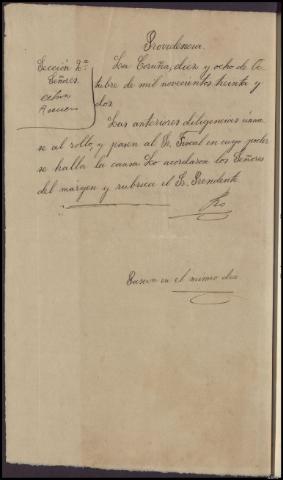 Providencia.
Sección 2ª
Señores.
La Coruña, diez y ocho de Oc
tubre de mil novecientos treinta y
dos
Las anteriores diligencias úna
se al rollo, y pasen al Sr. Fiscal en cuyo poder
se halla la causa. Lo acordaron los Señores
del margen y rubrica el Sr. Presidente
en el mismo dia